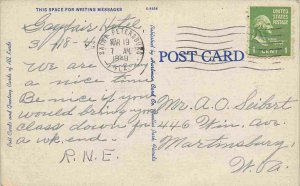 THIS SPACE FOR WRITING MESSAGES
Gayfair Hotel
3/18
We are
a nice time
Be nice if you
would bring your
class down for
a wk. end.
R.N.E.
Post Cards and Greeting Cards of All Kinds
SAINT PETERSBURG
MAR 19
7 AM
1949
FLA.
UNITED STATES
POSTAGE
1 CENT 1
POST CARD
Mr. A. O. Seibert
446 Win. Ave.
Martinsburg
W. Va.